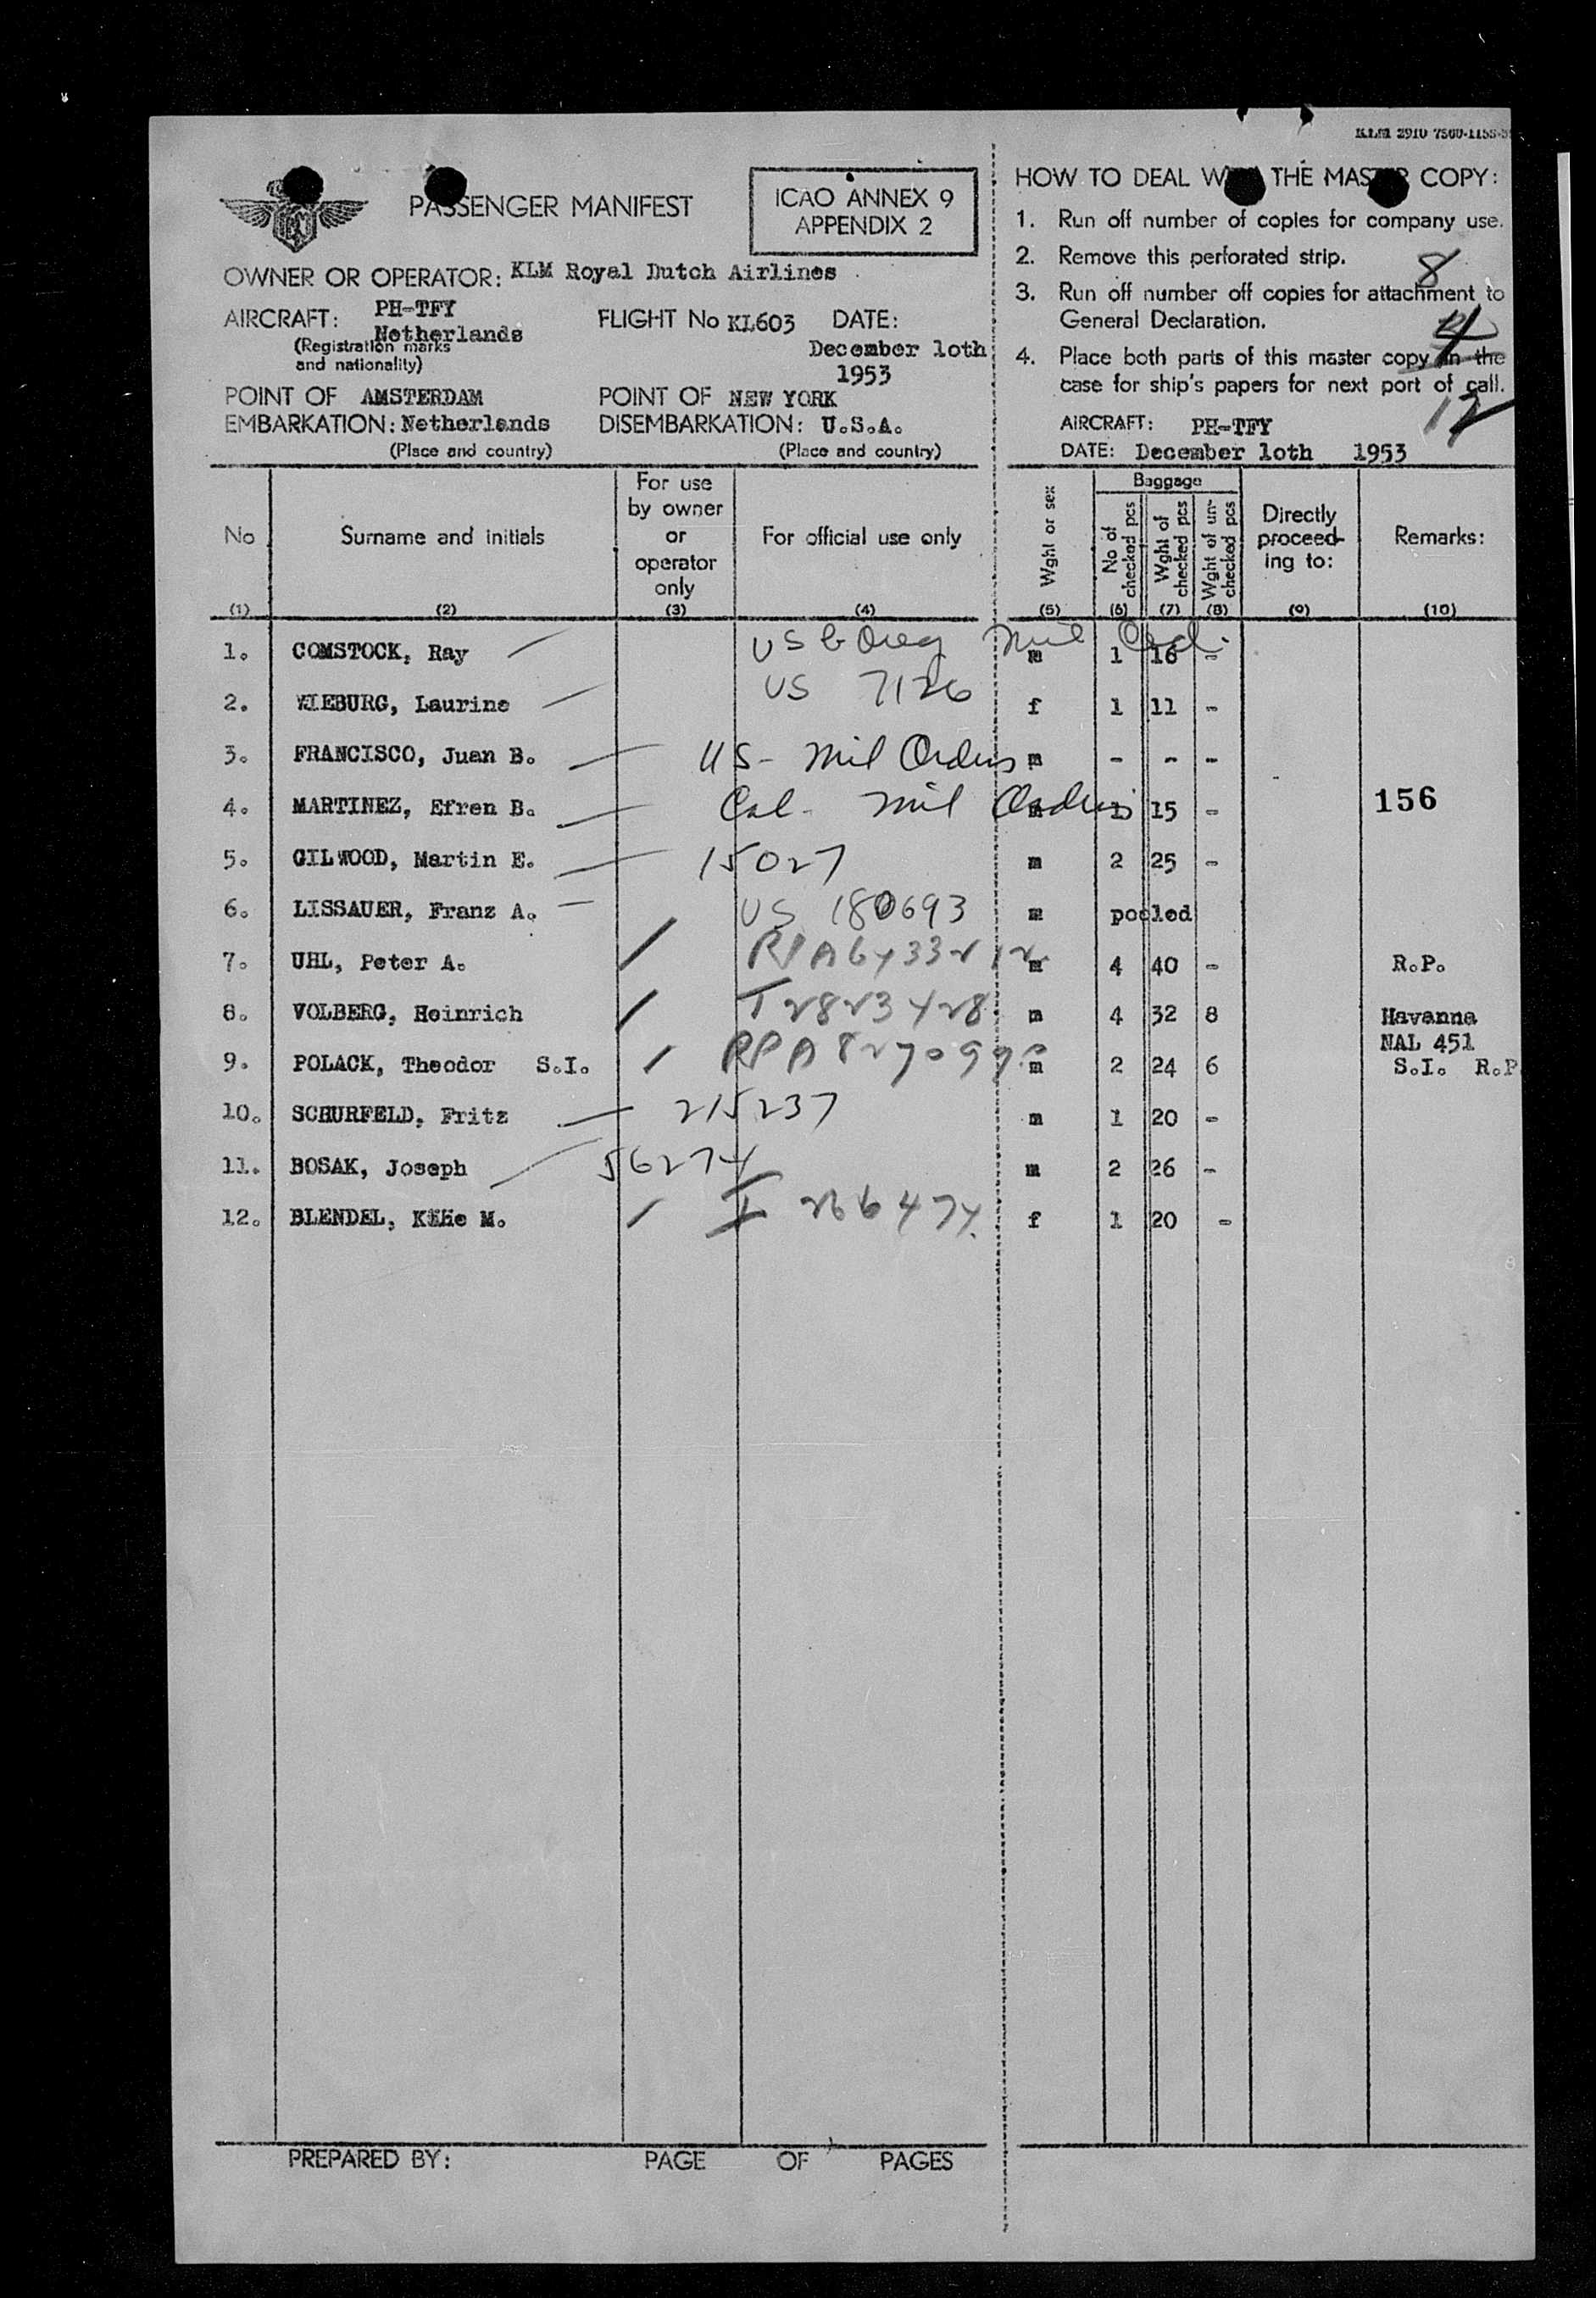 KLM 2910 7500-1153-5
PASSENGER MANIFEST
ICAO ANNEX 9
APPENDIX 2
OWNER OR OPERATOR: KLM Royal Dutch Airlines
AIRCRAFT: PH-TFY
Netherlands
(Registration marks
and nationality)
FLIGHT No KL603 DATE:
December 1oth
1953
POINT OF AMSTERDAM
EMBARKATION: Netherlands
(Place and country)
POINT OF NEW YORK
DISEMBARKATION: U.S.A.
(Place and country)
HOW TO DEAL WITH THE MASTER COPY:
1. Run off number of copies for company use.
2. Remove this perforated strip.
8
3. Run off number off copies for attachment to
General Declaration.
4
4. Place both parts of this master copy in the
case for ship's papers for next port of call.
12
AIRCRAFT: PH-TFY
DATE: December 1oth 1953
No Surname and initials For use by owner or operator only For official use only Wght or sex Baggage No of checked pcs Wght of checked pcs Wght of un-checked pcs Directly proceed-ing to: Remarks:
(1) (2) (3) (4) (5) (6) (7) (8) (9) (10)
1. COMSTOCK, Ray US Oreg Mil Ord. m 1 16 -
2. WIEBURG, Laurine US 7126 f 1 11 -
3. FRANCISCO, Juan B. US - Mil Orders m - - -
4. MARTINEZ, Efren B. Cal - Mil Orders 15 -
156
5. GILWOOD, Martin E. 15027 m 2 25 -
6. LISSAUER, Franz A. US 180693 m pooled
7. UHL, Peter A. m 4 40 - R.P.
8. VOLBERG, Heinrich T 2823428 m 4 32 8 Havanna
NAL 451
9. POLACK, Theodor S.I. m 2 24 6 S.I. R.P
10. SCHURFELD, Fritz 215237 m 1 20 -
11. BOSAK, Joseph 56274 m 2 26 -
12. BLENDEL, M. f 1 20 -
PREPARED BY: PAGE OF PAGES